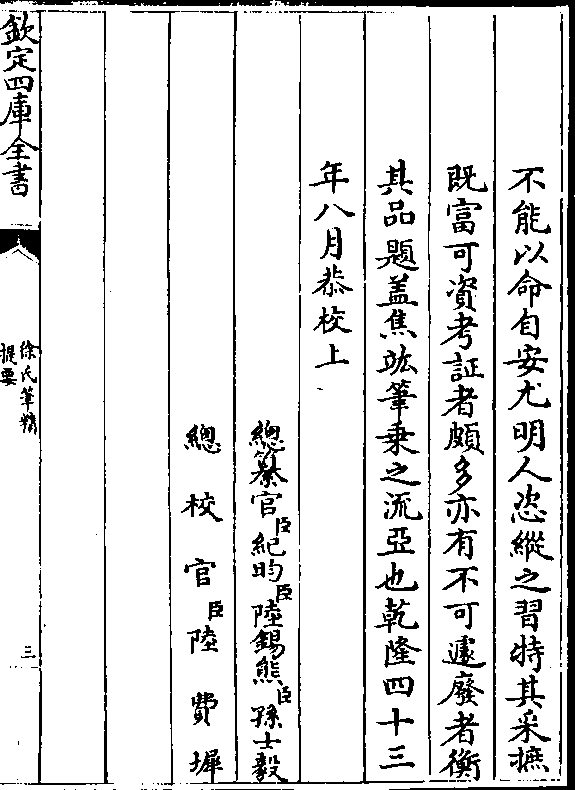 不能以命自安尤明人恣縱之習特其采摭
既富可資考証者頗多亦有不可遽廢者衡
其品題盖焦竑筆乗之流亞也乾隆四十三
年八月恭校上
總纂官臣紀昀臣陸錫熊臣孫士毅
總校官臣陸費墀
欽定四庫全書
徐氏筆精
提要
三